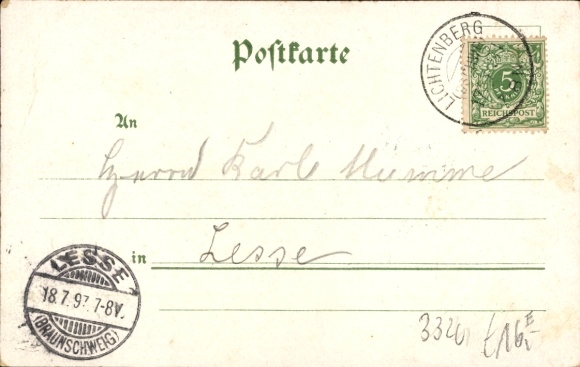 Postkarte
LICHTENBERG
5
REICHSPOST
An
Herrn Karl Mumme
in Lesse
LESSE
18.7.97. 7-8V.
(BRAUNSCHWEIG)
332
16,-